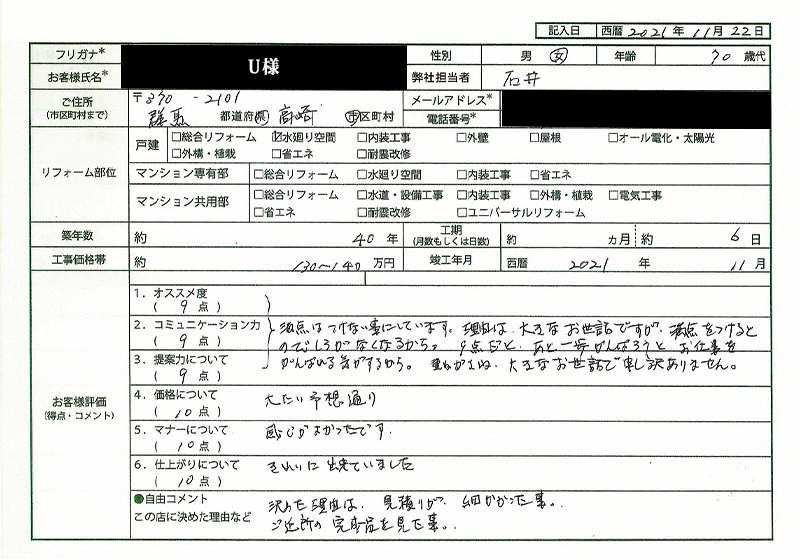 記入日 西暦 2021 年 11 月 22 日
フリガナ* U様 性別 男 女 年齢 70 歳代
お客様氏名* 弊社担当者 石井
ご住所 〒370-2101 メールアドレス*
(市区町村まで) 群馬 都道府県 高崎 市区町村 電話番号*
リフォーム部位
戸建 □総合リフォーム ☑水廻り空間 □内装工事 □外壁 □屋根 □オール電化・太陽光
□外構・植栽 □省エネ □耐震改修
マンション専有部 □総合リフォーム □水廻り空間 □内装工事 □省エネ
マンション共用部 □総合リフォーム □水道・設備工事 □内装工事 □外構・植栽 □電気工事
□省エネ □耐震改修 □ユニバーサルリフォーム
築年数 約 40 年 工期 (月数もしくは日数) 約 ヵ月 約 6 日
工事価格帯 約 130〜140 万円 竣工年月 西暦 2021 年 11 月
お客様評価
(得点・コメント)
1. オススメ度
( 9 点 )
2. コミュニケーション力
( 9 点 )
3. 提案力について
( 9 点 )
満点はつけない事にしています。理由は、大きなお世話ですが、満点をつけると
のびしろがなくなるから。 9点だと、あと一歩がんばろうと お仕事を
がんばれる気がするから。 大きなお世話で申し訳ありません。
4. 価格について
( 10 点 ) だいたい予想通り
5. マナーについて
( 10 点 ) 感じがよかったです.
6. 仕上がりについて
( 10 点 ) きれいに出来ていました
●自由コメント
この店に決めた理由など
決めた理由は、見積りが、細かかった事。
ご近所の完成品を見た事。